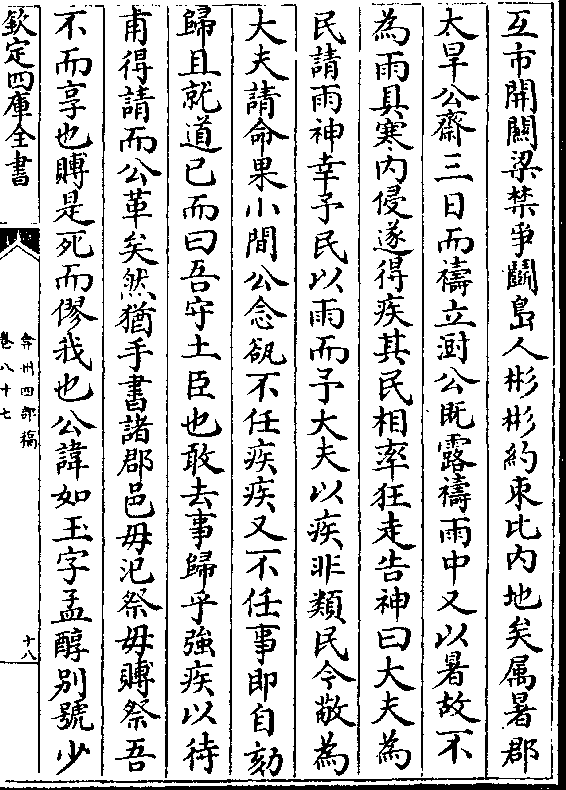 互市開闗梁禁爭鬭島人彬彬約束比内地矣属暑郡
太旱公齋三日而禱立澍公旣露禱雨中又以暑故不
為雨具寒内侵遂得疾其民相率狂走告神曰大夫為
民請雨神幸予民以雨而予大夫以疾非類民今敬為
大夫請命果小間公念翫不任疾疾又不任事即自劾
歸且就道已而曰吾守土臣也敢去事歸乎強疾以待
甫得請而公革矣然猶手書諸郡邑毋汜祭毋賻祭吾
不而享也賻是死而僇我也公諱如玉字孟醇别號少
欽定四庫全書
弇州四部稿
卷八十七
十八